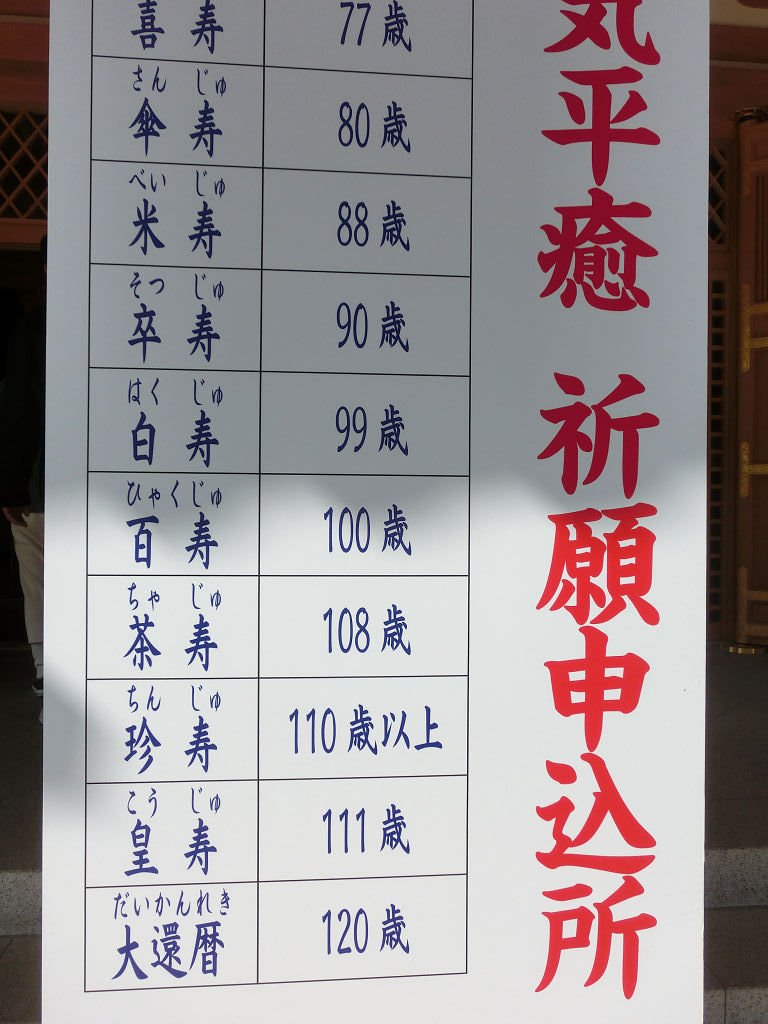 喜寿 77歳
さんじゅ
傘寿 80歳
べいじゅ
米寿 88歳
そつじゅ
卒寿 90歳
はくじゅ
白寿 99歳
ひゃくじゅ
百寿 100歳
ちゃじゅ
茶寿 108歳
ちんじゅ
珍寿 110歳以上
こうじゅ
皇寿 111歳
だいかんれき
大還暦 120歳
気平癒 祈願申込所